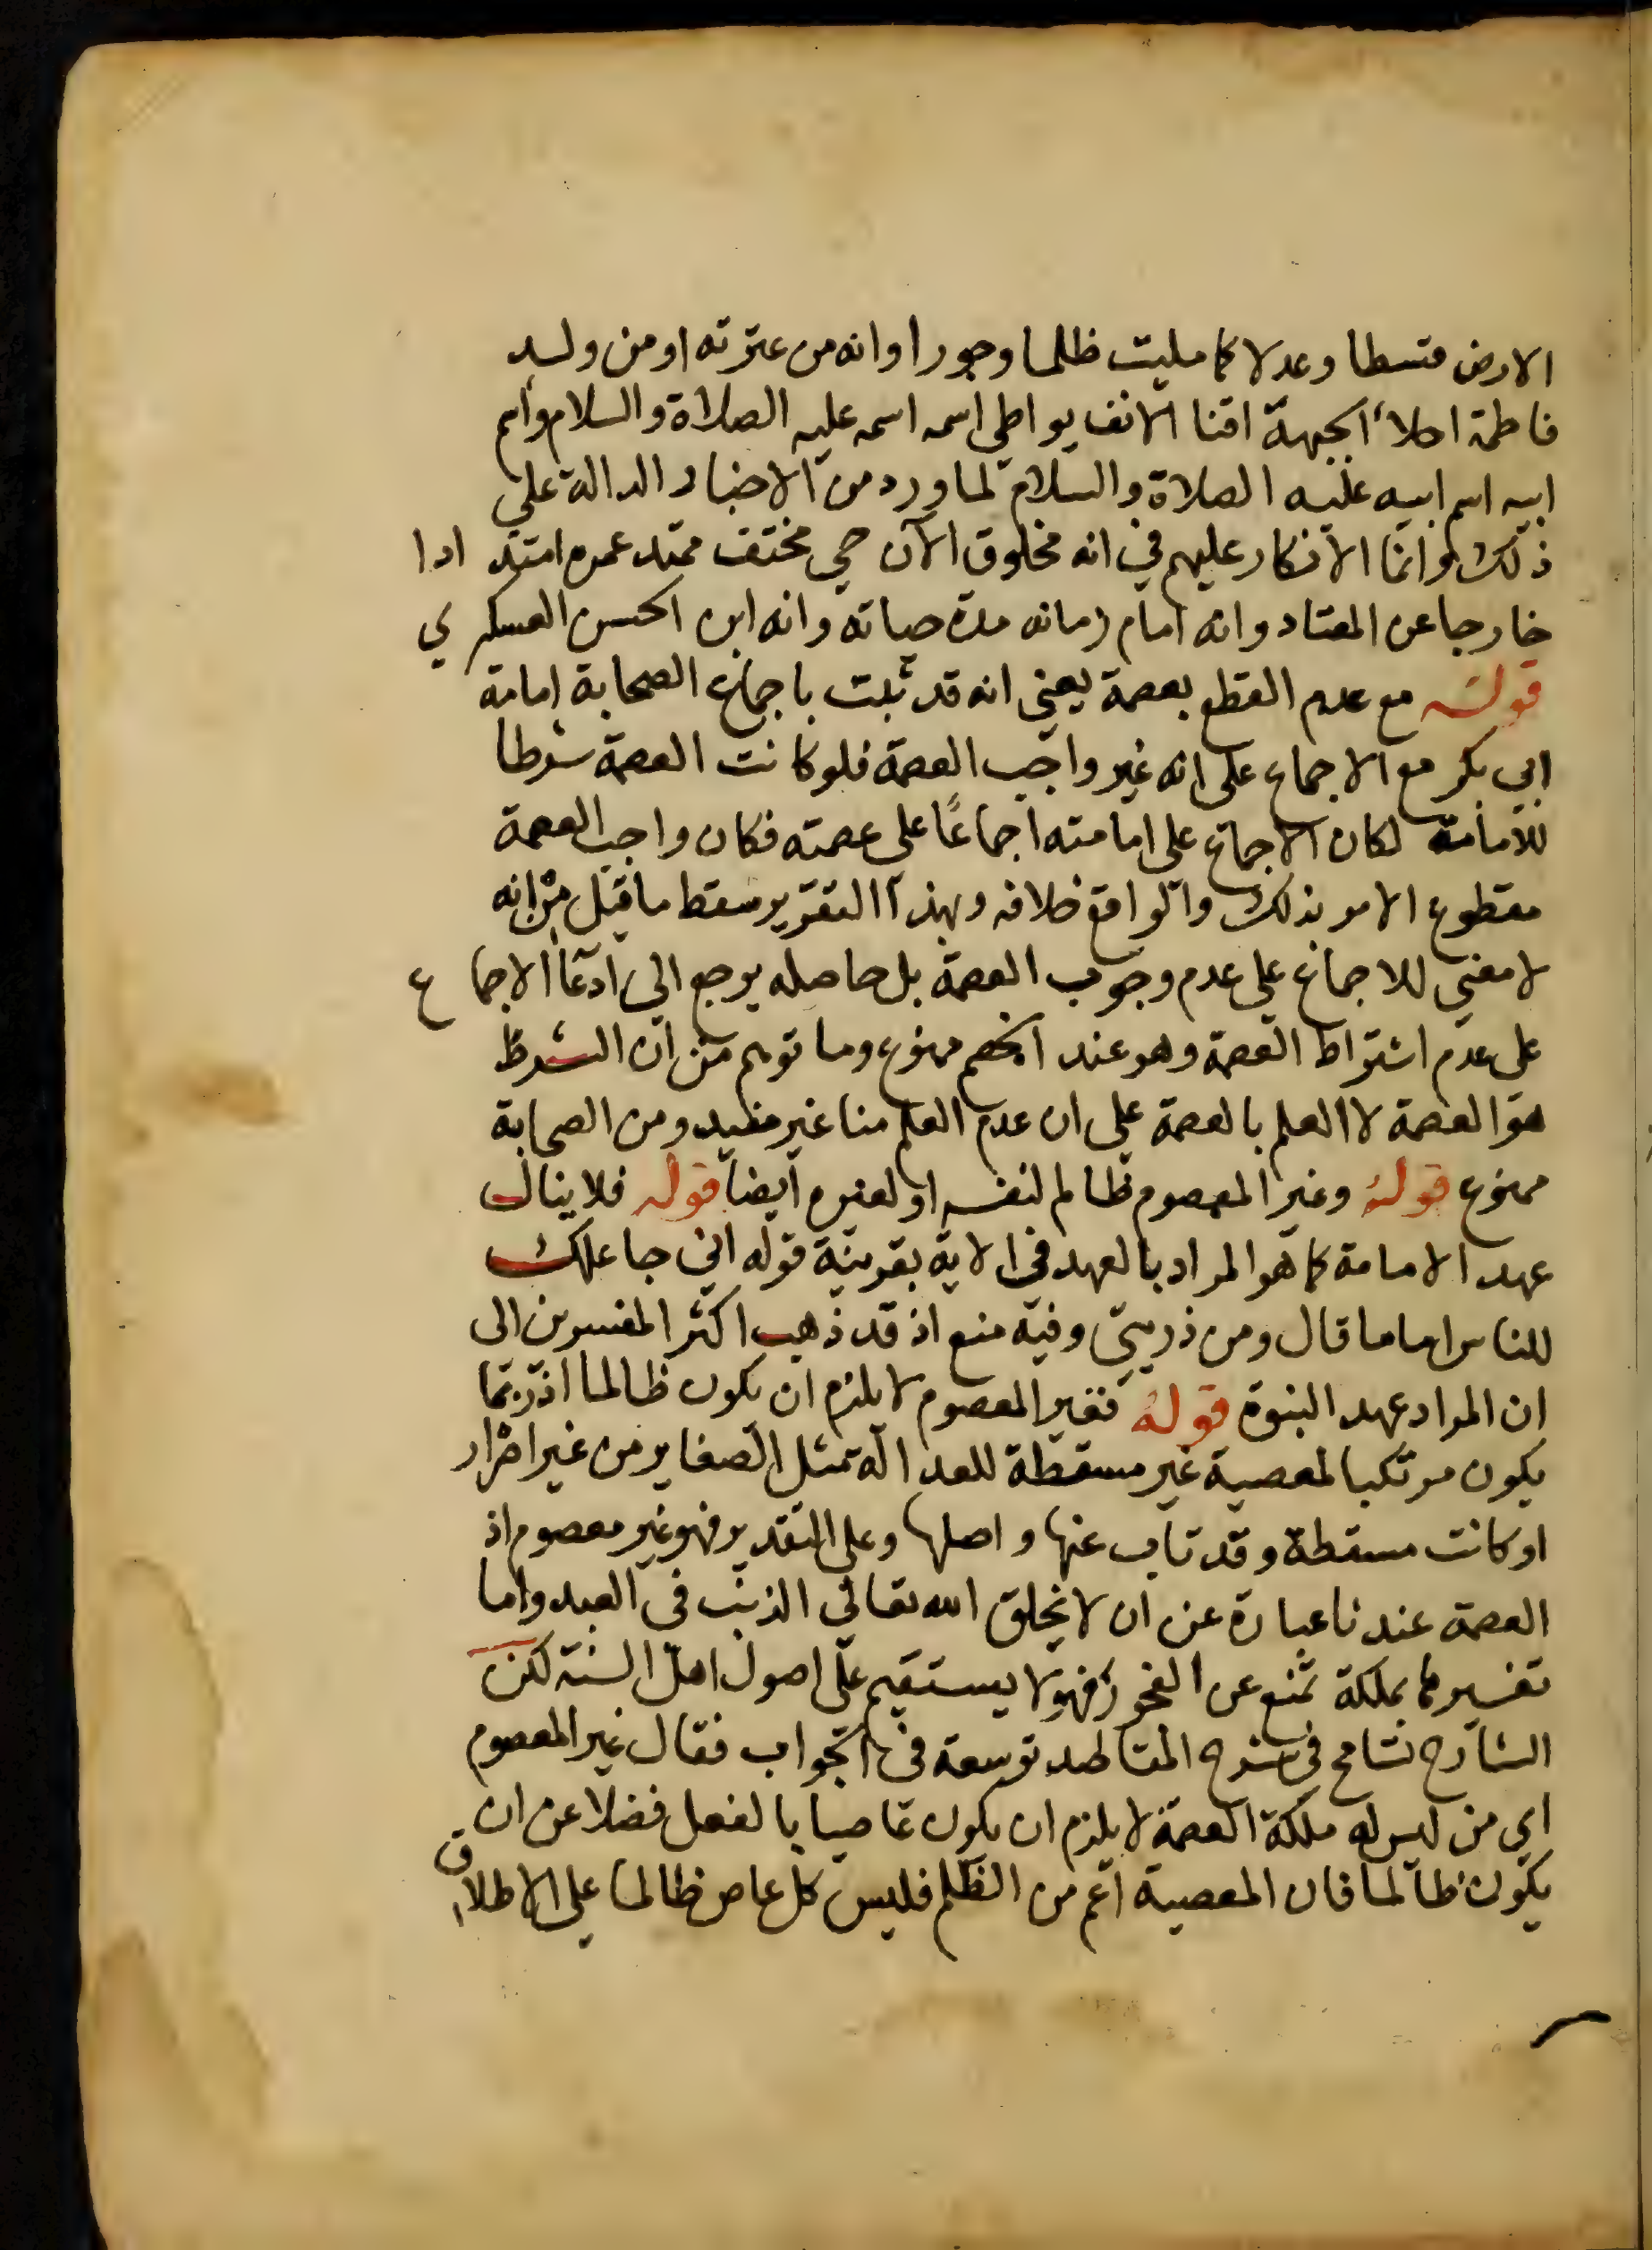 الارض قسطا وعدلا كما مليت ظلما وجورا وانه من عترته او من ولد
فاطمة اجلاً الجبهة اقنا الانف يواطي اسمه اسمه عليه الصلاة والسلام واسم
ابيه اسم ابيه عليه الصلاة والسلام لما ورد من الاخبار الدالة على
ذلك وانما الانكار عليهم في انه مخلوق الآن حي مختف ممتد عمره امتدادا
خارجا عن المعتاد وانه امام زمانه مدة حياته وانه ابن الحسن العسكري
قوله مع عدم القطع بعصمة يعني انه قد ثبت باجماع الصحابة امامة
ابي بكر مع الاجماع على انه غير واجب العصمة فلو كانت العصمة شرطا
للامامة لكان الاجماع على امامته اجماعًا على عصمته فكان واجب العصمة
مقطوع الامر بذلك والواقع خلافه وبهذا التقرير سقط ما قيل من انه
لا معنى للاجماع على عدم وجوب العصمة بل حاصله يرجع الى ادعا الاجماع
على عدم اشتراط العصمة وهو عند الخصم ممنوع وما توهم من ان الشرط
هو العصمة لا العلم بالعصمة على ان عدم العلم منا غير مفيد ومن الصحابة
ممنوع قوله وغير المعصوم ظالم لنفسه او لغيره ايضا قوله فلا ينال
عهد الامامة كما هو المراد بالعهد في الاية بقرينة قوله اني جاعلك
للناس اماما قال ومن ذريتي وفيه منع اذ قد ذهب اكثر المفسرين الى
ان المراد عهد النبوة قوله فغير المعصوم لا يلزم ان يكون ظالما اذ ربما
يكون مرتكبا لمعصية غير مسقطة للعدالة مثل الصغاير من غير اصرار
او كانت مسقطة وقد تاب عنها واصلها وعلى التقدير فهو غير معصوم اذ
العصمة عندنا عبارة عن ان لا يخلق الله تعالى الذنب في العبد واما
تفسيرها بملكة تمنع عن الفجور فهو لا يستقيم على اصول اهل السنة لكن
الشارح تسامح في شرح المقاصد توسعة في الجواب فقال غير المعصوم
اي من ليس له ملكة العصمة لا يلزم ان يكون عاصيا بالفعل فضلا عن ان
يكون ظالما فان المعصية اعم من الظلم فليس كل عاص ظالما على الاطلاق